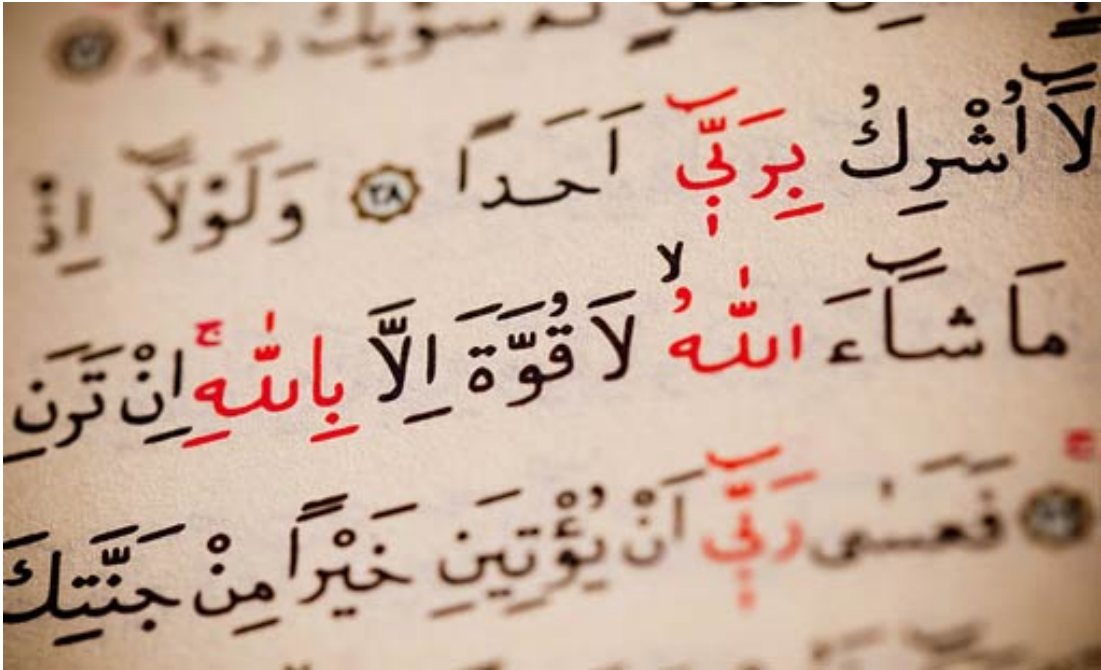 سَوّٰيكَ رَجُلًا ﴿٣٧﴾
لَٓا اُشْرِكُ بِرَبّ۪ٓي اَحَداً ﴿٣٨﴾ وَلَوْلَٓا اِذْ
مَا شَٓاءَ اللّٰهُۙ لَا قُوَّةَ اِلَّا بِاللّٰهِۚ اِنْ تَرَنِ
فَعَسٰى رَبّ۪ٓي اَنْ يُؤْتِيَنِ خَيْراً مِنْ جَنَّتِكَ